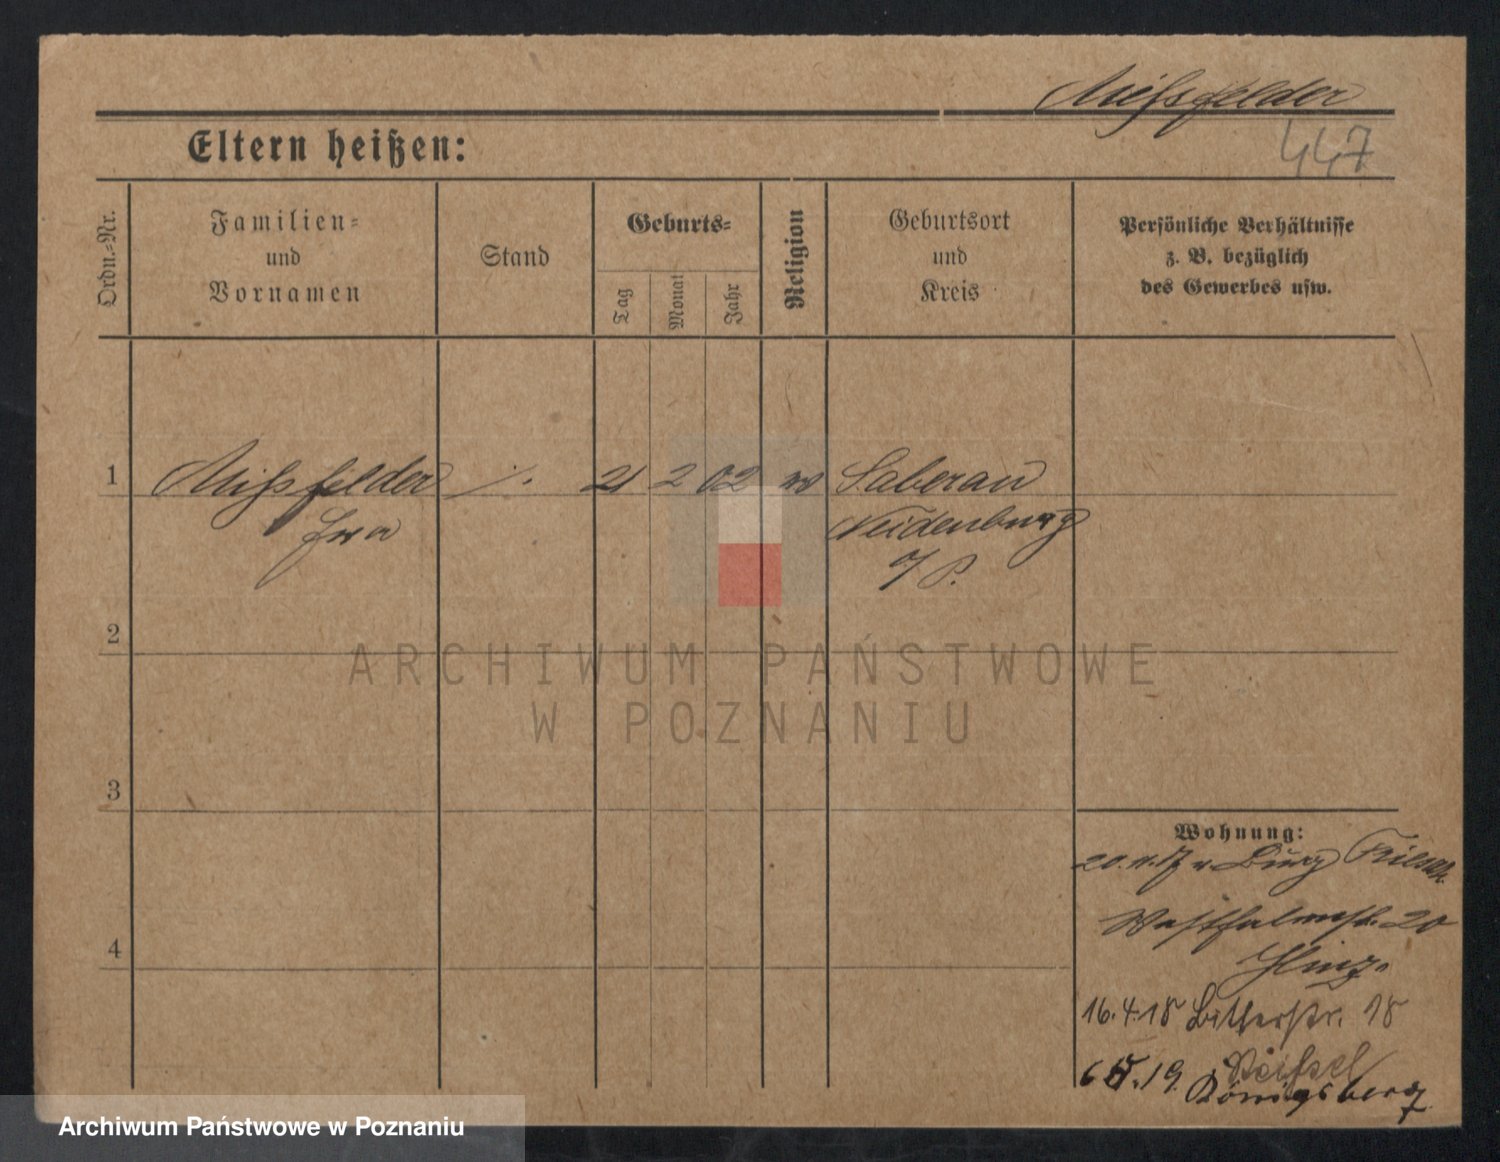 Mißfelder
Eltern heißen:
447
Ordn.-Nr.
Familien-
und
Vornamen
Stand
Geburts-
Tag
Monat
Jahr
Religion
Geburtsort
und
Kreis
Persönliche Verhältnisse
z. B. bezüglich
des Gewerbes usw.
1
Mißfelder
/.
21
2
02
Saberau
Neidenburg
2
ARCHIWUM PAŃSTWOWE
W POZNANIU
3
Wohnung:
20. 11. 17 v Burg
4
20
16.4.18 Lutherstr. 18
19. Königsberg
Archiwum Państwowe w Poznaniu